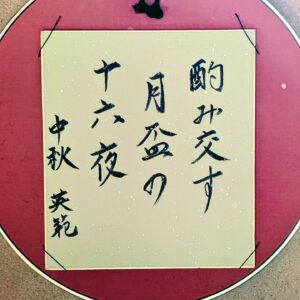 酌み交す
月盃の
十六夜
中秋 英範